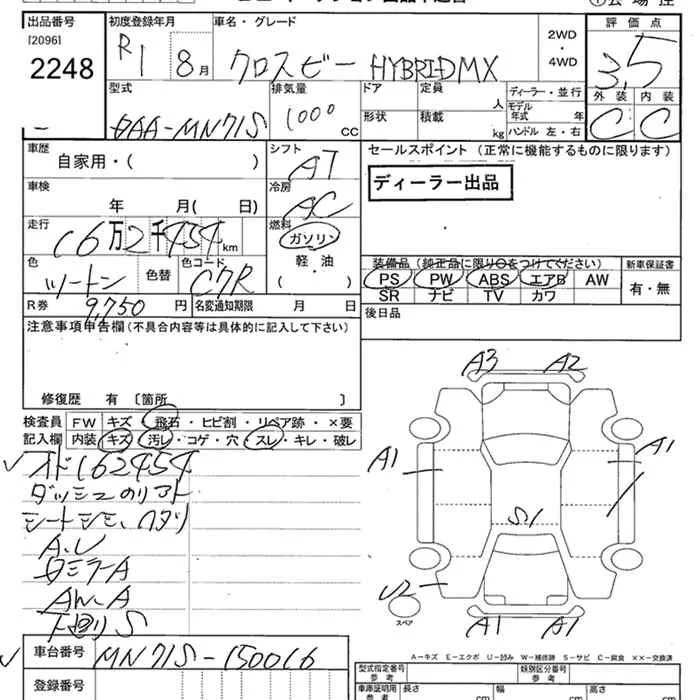 出品番号 初度登録年月 車名・グレード 2WD 評価点
[2096] ・
2248 R1 8月 クロスビー HYBRIDMX 4WD 3.5
型式 排気量 ドア 定員 ディーラー・並行 外装 内装
人 モデル年式 年
DAA-MN71S 1000 CC 形状 積載 kg ハンドル 左・右 C C
車歴 シフト セールスポイント (正常に機能するものに限ります)
自家用・( ) AT
ディーラー出品
車検 冷房
年 月( 日) AC
走行 燃料
16万2千454km ガソリン
色 色替 色コード 軽・油 装備品 (純正品に限り○をつけてください) 新車保証書
ツートン C7R ( ) PS PW ABS エアB AW 有・無
R券 9,750 円 名変通知期限 月 日 SR ナビ TV カワ
注意事項申告欄(不具合内容等は具体的に記入して下さい) 後日品
修復歴 有 〔箇所 〕
検査員 FW キズ・飛石・ヒビ割・リペア跡・×要
記入欄 内装 キズ・汚レ・コゲ・穴・スレ・キレ・破レ
オド162454
ダッシュのリアト
シートシミ、
A.U
ミラーA
AW-A
下廻りS
A3 A2
A1 A1
S1
U2
スペア
A1 A1
A-キズ E-エクボ U-凹み W-補修跡 S-サビ C-腐食 ××-交換済
車台番号 MN71S-150016
型式指定番号 参考 類別区分番号 参考
登録番号 車庫証明用 参考 長さ cm 幅 cm 高さ cm